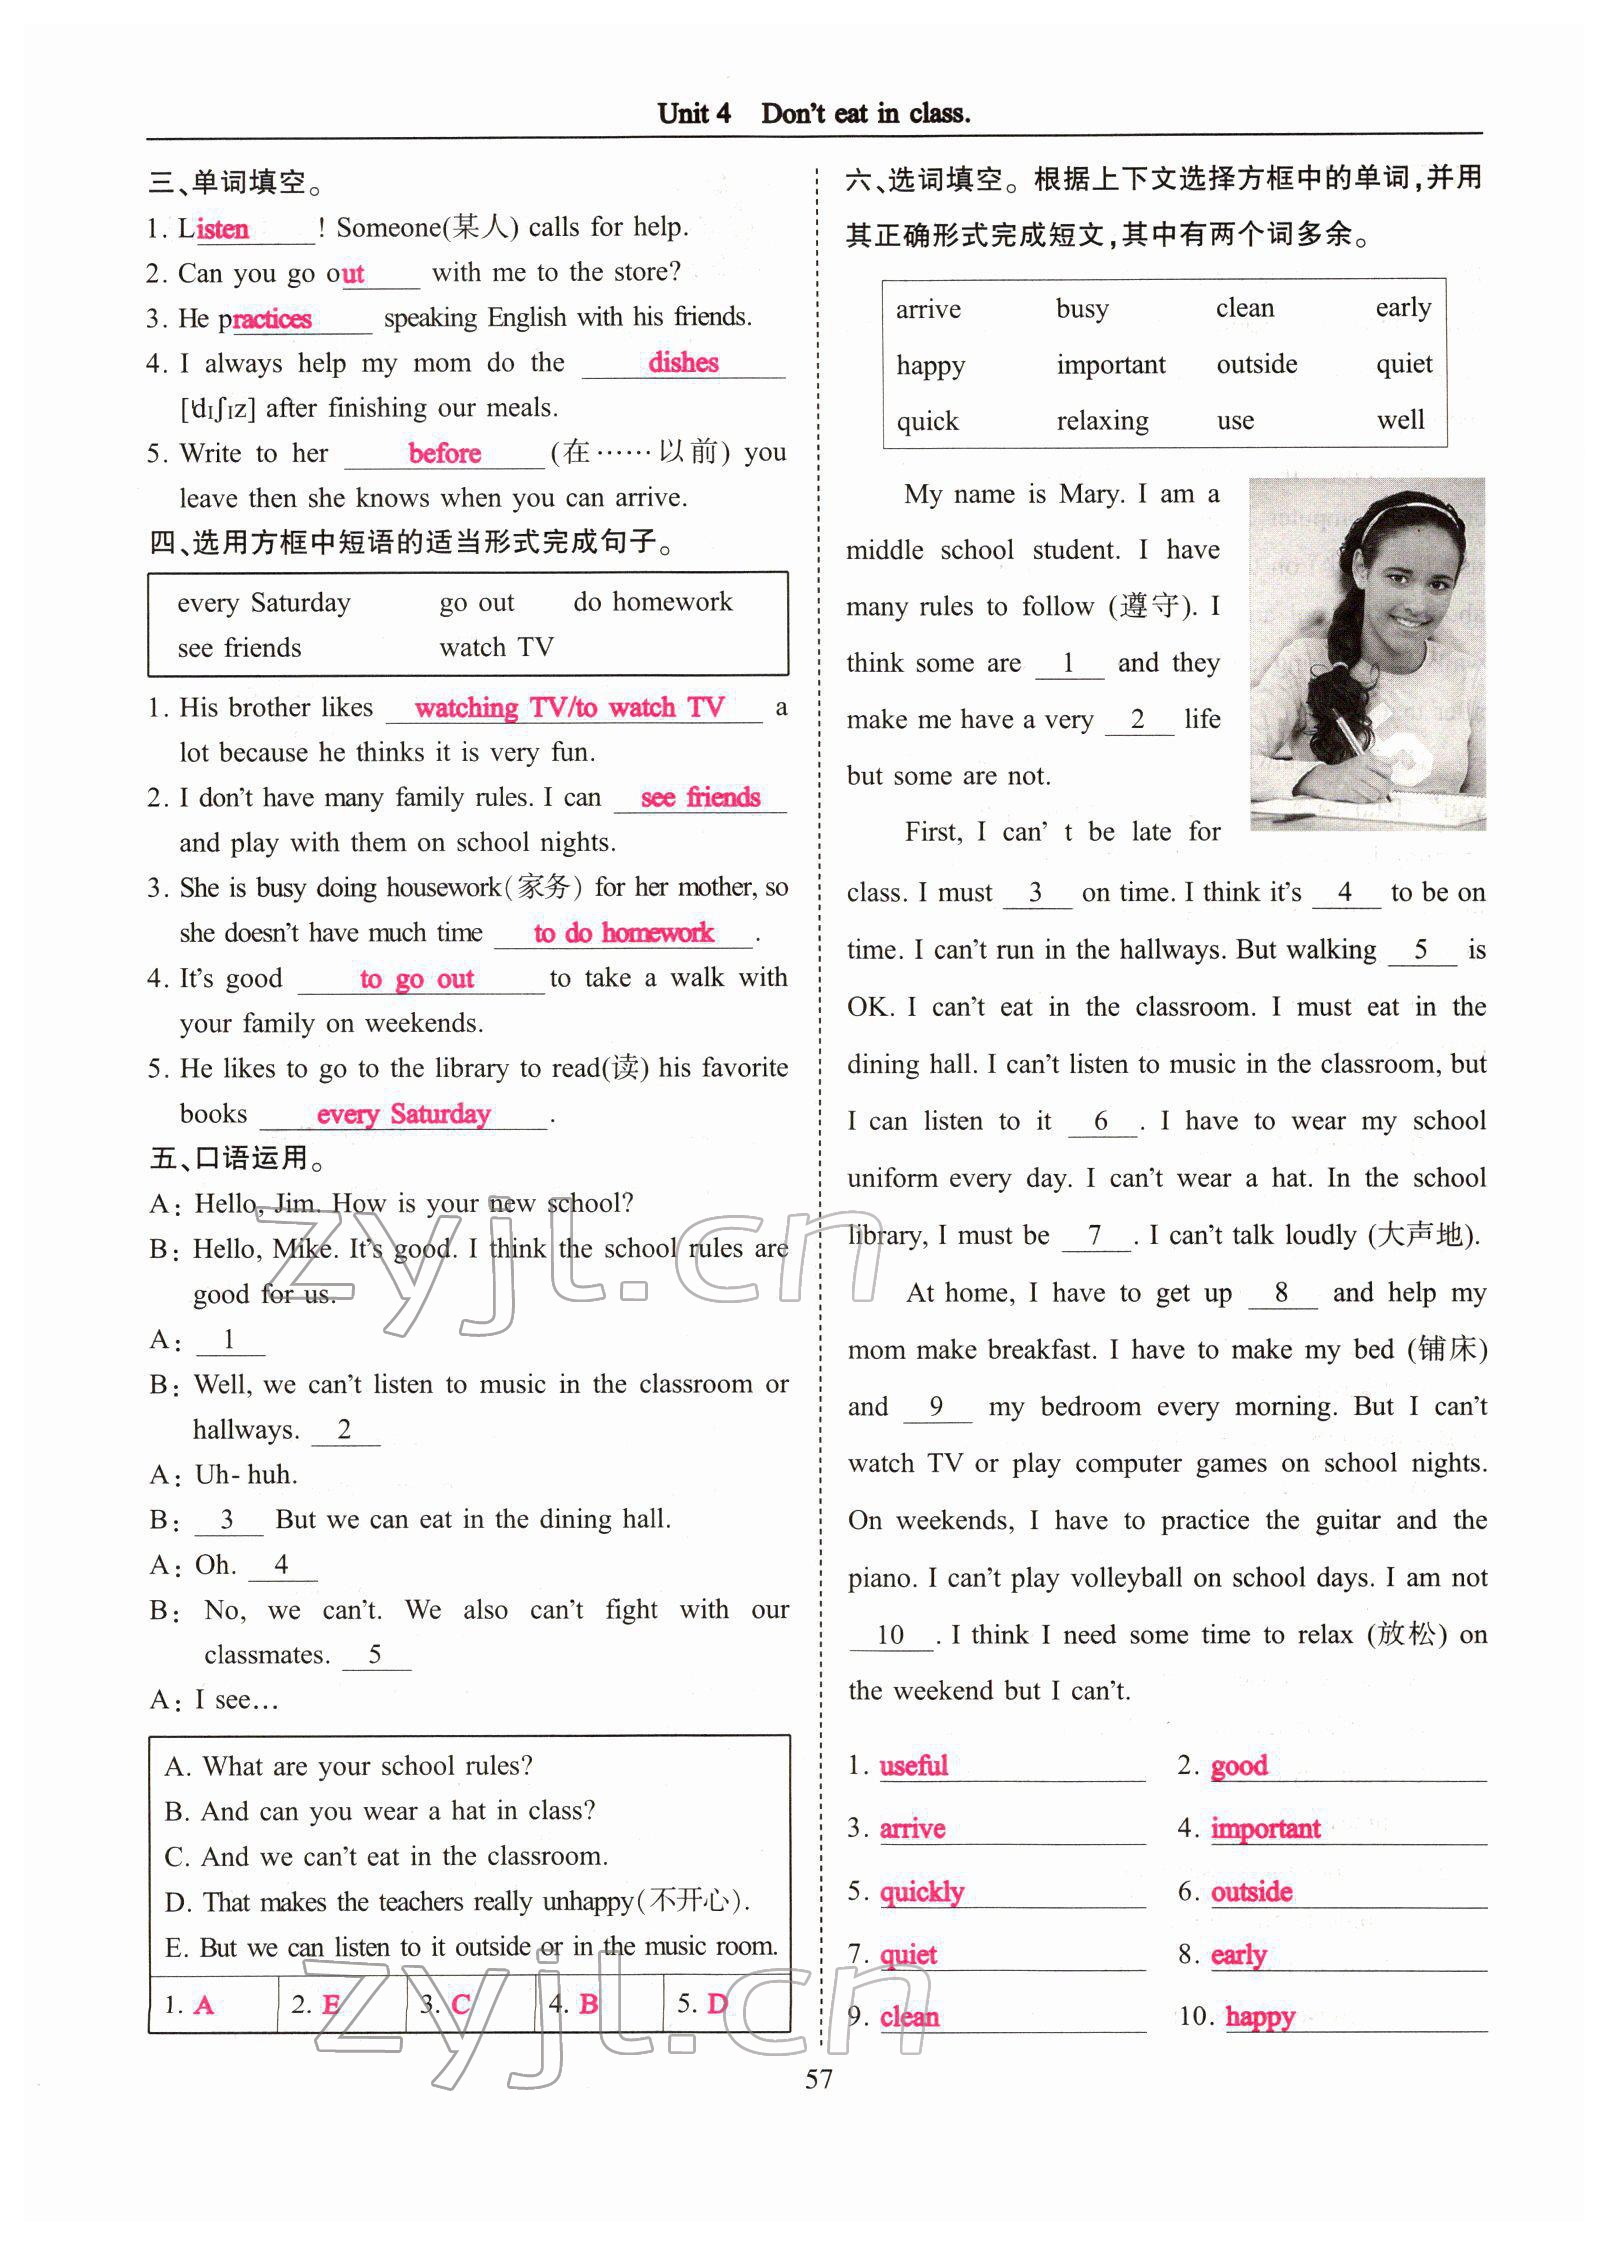 Unit 4 Don't eat in class.
三、单词填空。
1. Listen! Someone(某人) calls for help.
2. Can you go out with me to the store?
3. He practices speaking English with his friends.
4. I always help my mom do the dishes
['dɪʃɪz] after finishing our meals.
5. Write to her before (在……以前) you
leave then she knows when you can arrive.
四、选用方框中短语的适当形式完成句子。
every Saturday go out do homework
see friends watch TV
1. His brother likes watching TV/to watch TV a
lot because he thinks it is very fun.
2. I don't have many family rules. I can see friends
and play with them on school nights.
3. She is busy doing housework(家务) for her mother, so
she doesn't have much time to do homework.
4. It's good to go out to take a walk with
your family on weekends.
5. He likes to go to the library to read(读) his favorite
books every Saturday.
五、口语运用。
A: Hello, Jim. How is your new school?
B: Hello, Mike. It's good. I think the school rules are
good for us.
A: 1
B: Well, we can't listen to music in the classroom or
hallways. 2
A: Uh- huh.
B: 3 But we can eat in the dining hall.
A: Oh. 4
B: No, we can't. We also can't fight with our
classmates. 5
A: I see…
A. What are your school rules?
B. And can you wear a hat in class?
C. And we can't eat in the classroom.
D. That makes the teachers really unhappy(不开心).
E. But we can listen to it outside or in the music room.
1. A 2. E 3. C 4. B 5. D
六、选词填空。根据上下文选择方框中的单词,并用
其正确形式完成短文,其中有两个词多余。
arrive busy clean early
happy important outside quiet
quick relaxing use well
My name is Mary. I am a
middle school student. I have
many rules to follow (遵守). I
think some are 1 and they
make me have a very 2 life
but some are not.
First, I can' t be late for
class. I must 3 on time. I think it's 4 to be on
time. I can't run in the hallways. But walking 5 is
OK. I can't eat in the classroom. I must eat in the
dining hall. I can't listen to music in the classroom, but
I can listen to it 6. I have to wear my school
uniform every day. I can't wear a hat. In the school
library, I must be 7. I can't talk loudly (大声地).
At home, I have to get up 8 and help my
mom make breakfast. I have to make my bed (铺床)
and 9 my bedroom every morning. But I can't
watch TV or play computer games on school nights.
On weekends, I have to practice the guitar and the
piano. I can't play volleyball on school days. I am not
10. I think I need some time to relax (放松) on
the weekend but I can't.
1. useful 2. good
3. arrive 4. important
5. quickly 6. outside
7. quiet 8. early
9. clean 10. happy
57
zyjl.cn
zyjl.cn